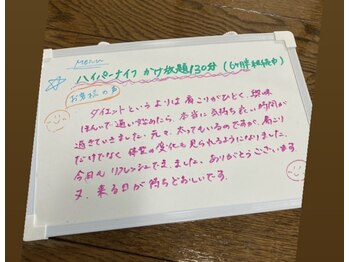 MENU
☆ ハイパーナイフ かけ放題130分 (6ヶ月半継続中)
お客様の声
ダイエットというよりは肩こりがひどく、興味
ほんいで通い始めたら、本当に気持ち良い時間が
過ぎていきました。元々、太ってもいるのですが、肩こり
だけでなく 体型の変化も見られるようになりました。
今日も リフレッシュできました。ありがとうございます。
又、来る日が待ちどおしいです。